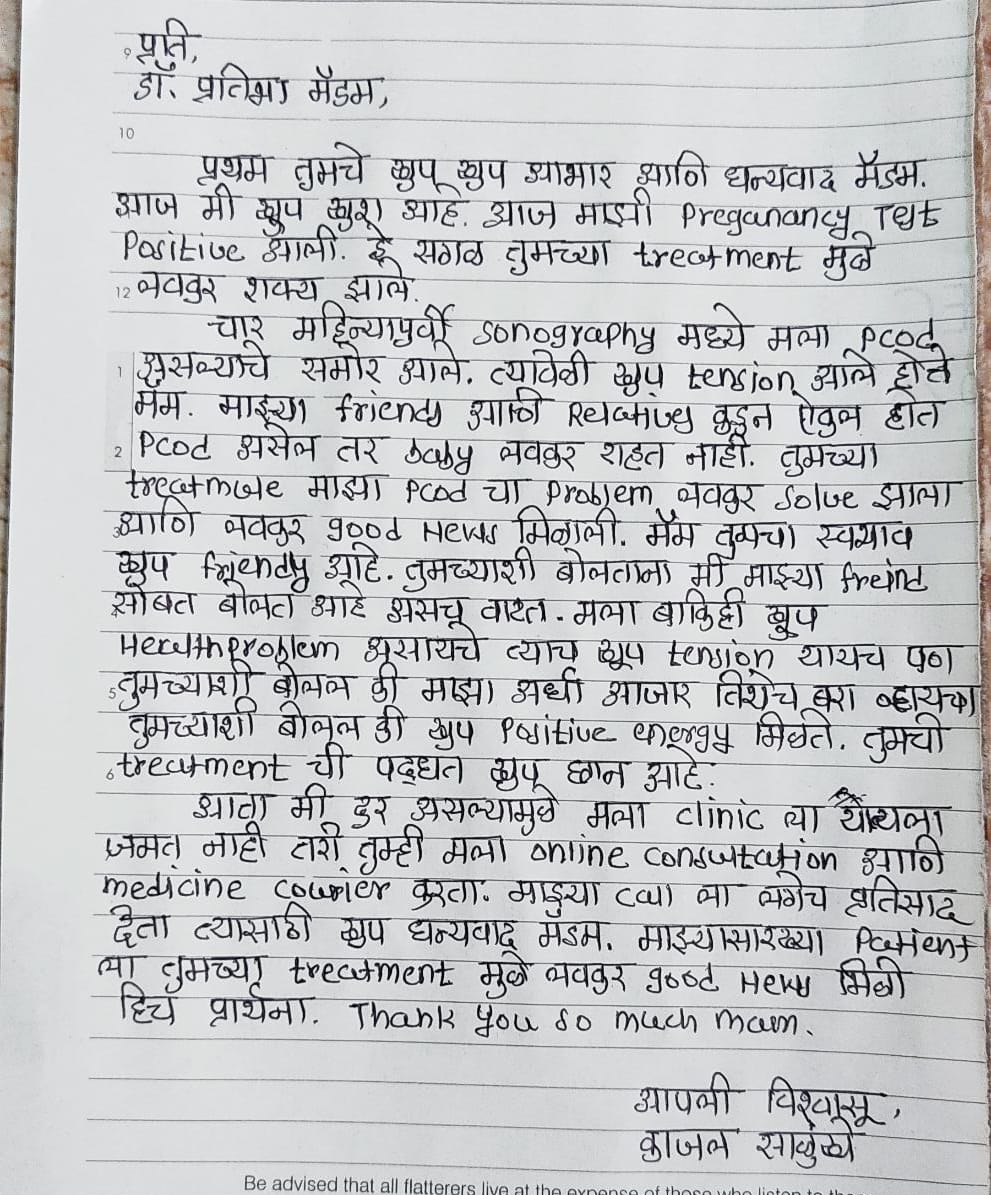 प्रति,
डॉ. प्रतिभा मॅडम,
10
प्रथम तुमचे खुप खुप आभार आणि धन्यवाद मॅडम.
आज मी खुप खुश आहे. आज माझी Preganancy Test
Positive आली. हे सगळ तुमच्या treatment मुळे
12 लवकर शक्य झाले.
चार महिन्यापुर्वी sonography मध्ये मला pcod
1 असल्याचे समोर आले. त्यावेळी खुप tension आले होते
मॅम. माझ्या friends आणि Relatives कडुन ऐकुल होत
2 Pcod असेल तर baby लवकर राहत नाही. तुमच्या
treatmule माझा pcod चा problem लवकर solve झाला
आणि लवकर good News मिळाली. मॅम तुमचा स्वभाव
खुप friendy आहे. तुमच्याशी बोलताना मी माझ्या freind
सोबत बोलत आहे असचू वाटत. मला बाकिही खुप
Healthproblem असायचे त्याच खुप tension यायच पण
5 तुमच्याशी बोलल की माझा अर्धा आजार तिथेच बरा व्हायचा
तुमच्याशी बोलल की खुप Positive energy मिळते. तुमची
6 treatment ची पद्धत खुप छान आहे.
आता मी दुर असल्यामुळे मला clinic ला यायला
जमत नाही तरी तुम्ही मला online consultation आणि
medicine courier करता. माझ्या call ला लगेच प्रतिसाद
देता त्यासाठी खुप धन्यवाद मॅडम. माझ्यासारख्या Patient
ला तुमच्या treatment मुळे लवकर good News मिळो
हिच प्रार्थना. Thank you so much mam.
आपली विश्वासू,
काजल साळुंखे
Be advised that all flatterers live at the expense of those who listen to